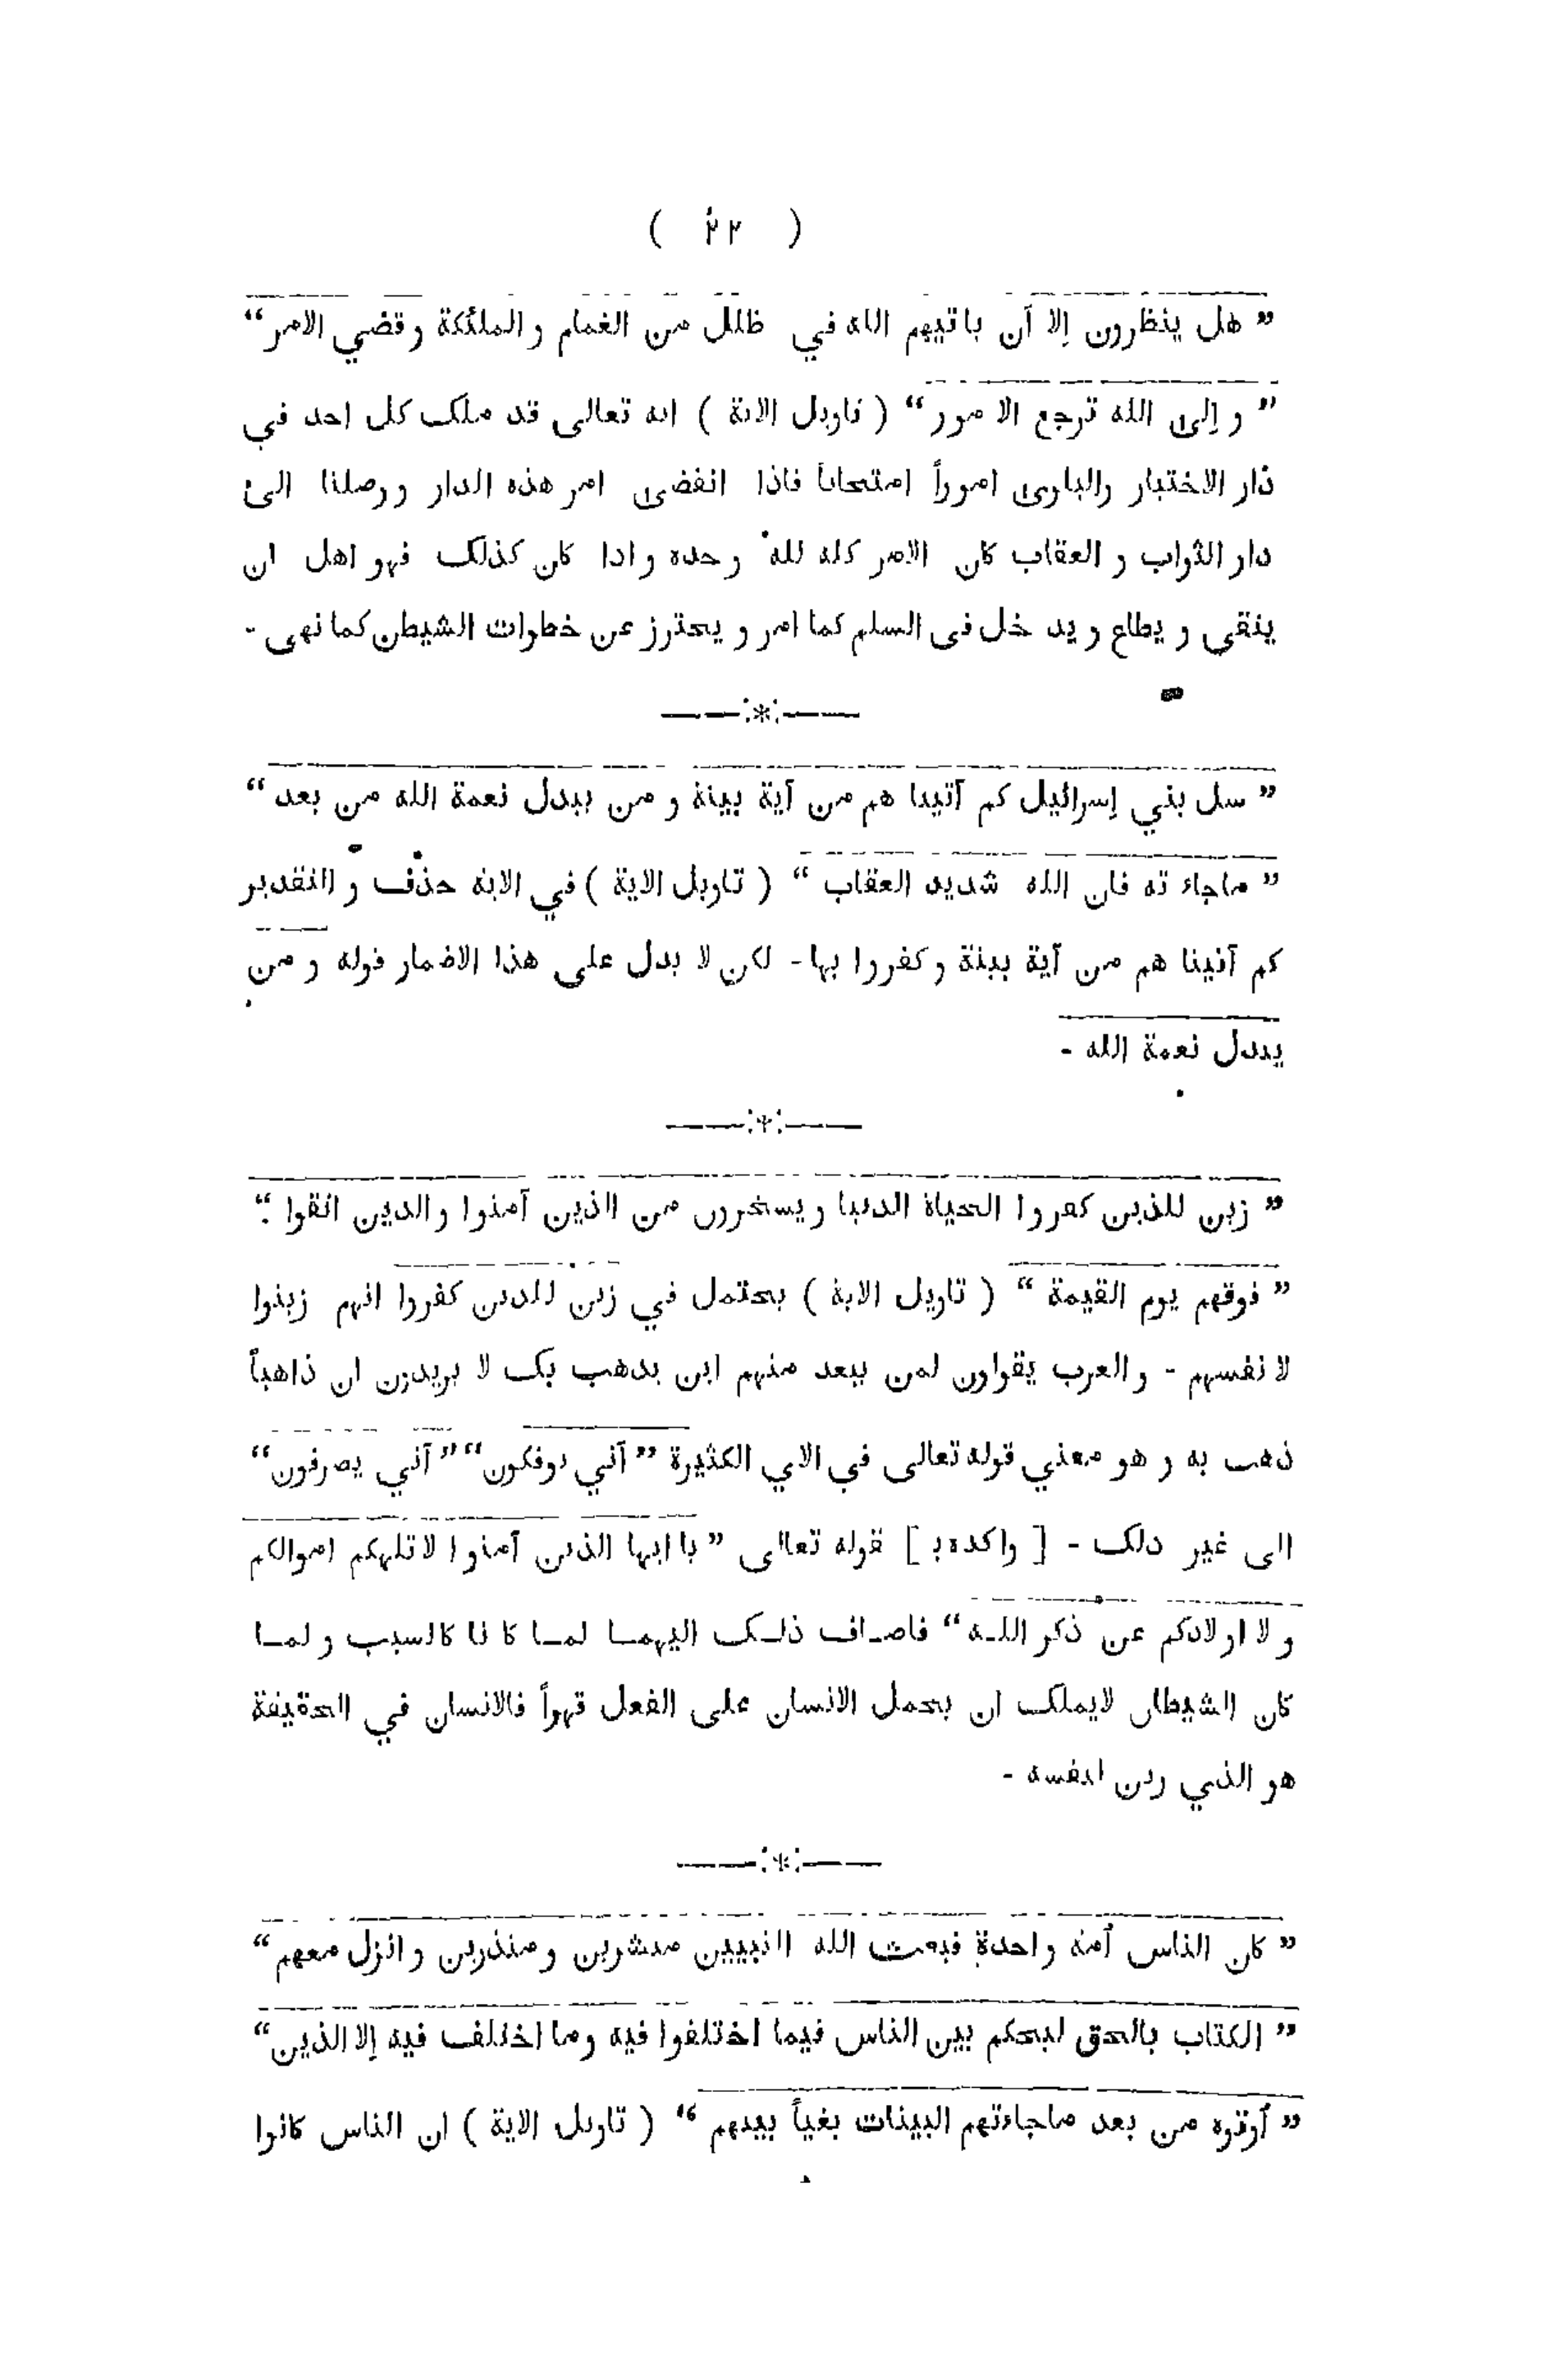 ( ٢٢ )
” هل ينظرون إلا آن ياتيهم الله في ظلل من الغمام و الملئكة و قضي الامر “
” و إلى الله ترجع الا مور “ ( تاويل الاية ) انه تعالى قد ملك كل احد في
دار الاختبار والبلوى اموراً امتحاناً فاذا انقضى امر هذه الدار و وصلنا الى
دار الثواب و العقاب كان الامر كله لله وحده و اذا كان كذلك فهو اهل ان
يتقى و يطاع و يد خل فى السلم كما امر و يحترز عن خطوات الشيطن كما نهى -
——:*:——
” سل بني إسرائيل كم آتينا هم من آية بينة و من يبدل نعمة الله من بعد “
” ماجاء ته فان الله شديد العقاب “ ( تاويل الاية ) في الاية حذف و التقدير
كم آتينا هم من آية بينة و كفروا بها - لكن لا بدل على هذا الاضمار قوله و من
يبدل نعمة الله -
——:*:——
” زين للذين كفروا الحياة الدنيا ويسخرون من الذين آمنوا والذين اتقوا “
” فوقهم يوم القيمة “ ( تاويل الاية ) يحتمل في زين للذين كفروا انهم زينوا
لا نفسهم - والعرب يقولون لمن يبعد منهم اين يذهب بك لا يريدون ان ذاهباً
ذهب به و هو معني قوله تعالى في الاي الكثيرة ” آني يوفكون “ ” آني يصرفون “
الى غير ذلك - [ واكده ] قوله تعالى ” يا ايها الذين آمنوا لا تلهكم اموالكم
و لا اولادكم عن ذكر اللـه “ فاضـاف ذلـك اليهمـا لمـا كا نا كالسبب و لمـا
كان الشيطان لايملك ان يحمل الانسان على الفعل قهراً فالانسان في الحقيقة
هو الذي زين لنفسه -
——:*:——
” كان الناس آمة واحدة فبعث الله النبيين مبشرين ومنذرين وانزل معهم “
” الكتاب بالحق ليحكم بين الناس فيما اختلفوا فيه وما اختلف فيه إلا الذين “
” آوتوه من بعد ماجاءتهم البينات بغياً بينهم “ ( تاويل الاية ) ان الناس كانوا